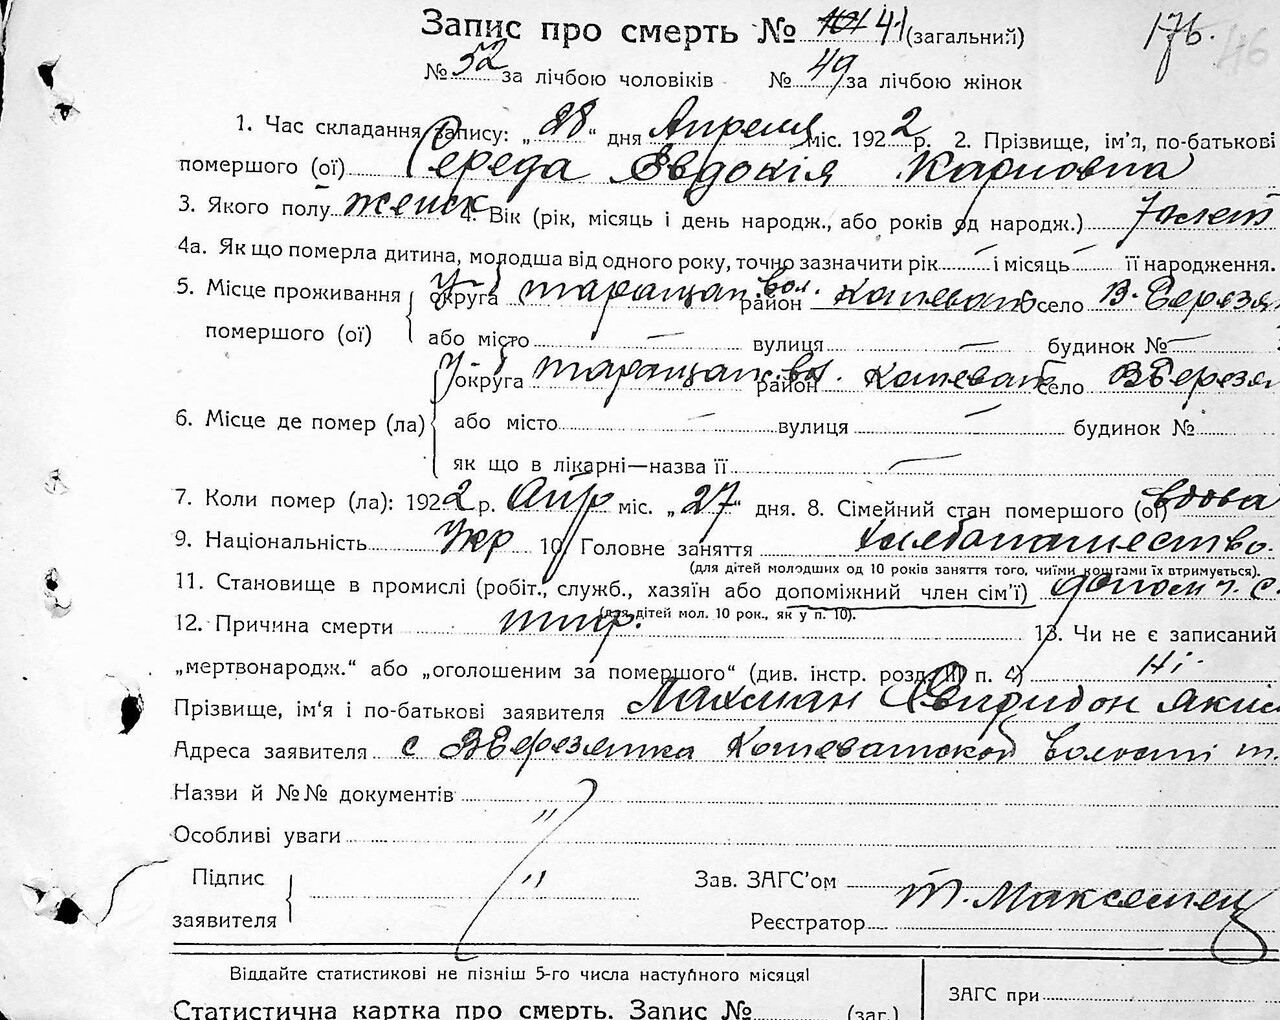 Запис про смерть № 101 41 (загальний) 176. 46
№ 52 за лічбою чоловіків № 49 за лічбою жінок
1. Час складання запису: „28“ дня Апреля міс. 1922 р. 2. Прізвище, ім'я, по-батькові
помершого (ої) Середа Евдокія Карповна
3. Якого полу женск 4. Вік (рік, місяць і день народж., або років од народж.) 70 лет
4а. Як що померла дитина, молодша від одного року, точно зазначити рік — і місяць — її народження.
5. Місце проживання округа у. Таращан. район вол. Кошеват село В. Березян
помершого (ої) або місто — вулиця — будинок № —
округа у. Таращан. район вол. Кошеват село В Березян
6. Місце де помер (ла) або місто — вулиця — будинок №
як що в лікарні—назва її —
7. Коли помер (ла): 1922 р. Апр міс. „27“ дня. 8. Сімейний стан помершого (ої) вдова
9. Національність Укр 10. Головне заняття хлебопашество.
(для дітей молодших од 10 років заняття того, чиїми коштами їх втримується).
11. Становище в промислі (робіт., служб., хазяїн або допоміжний член сім'ї) допом ч. с.
(для дітей мол. 10 рок., як у п. 10).
12. Причина смерти тиф. 13. Чи не є записаний
„мертвонародж.“ або „оголошеним за помершого“ (див. інстр. розд. III п. 4) Ні.
Прізвище, ім'я і по-батькові заявителя Лахман Свиридон Яким
Адреса заявителя с ВБерезянка Кошеватской волости т.
Назви й №№ документів "
Особливі уваги
Підпис заявителя " Зав. ЗАГС'ом
Реєстратор Т. Максемец
Віддайте статистикові не пізніш 5-го числа наступного місяця!
Статистична картка про смерть. Запис № (заг.) ЗАГС при